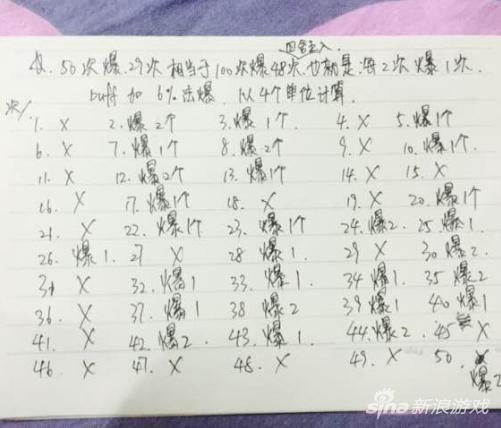 四舍五入.
50次爆29次相当于100次爆48次.也就是.每2次爆1次.
buff加6%法爆.以4个单位计算.
次/.
1. X 2. 爆2个 3. 爆1个. 4. X 5. 爆1个
6. X 7. 爆1个 8. 爆2个 9. X 10. 爆1个.
11. X 12. 爆2个 13. 爆1个 14. X 15. X
16. X 17. 爆1个 18. X 19. X 20. 爆1个
21. X 22. 爆1个 23. 爆1个 24. 爆2 25. 爆1
26. 爆1. 27 X 28. 爆1 29 X 30 爆2.
31 X 32. 爆1 33. 爆1 34 爆1. 35 爆2
36. X 37. 爆1 38 爆2 39 爆1 40 爆1
41. X 42. 爆2. 43. 爆1. 44. 爆2. 45 X
46. X 47. X 48. X 49. X 50. 爆2
sina新浪游戏